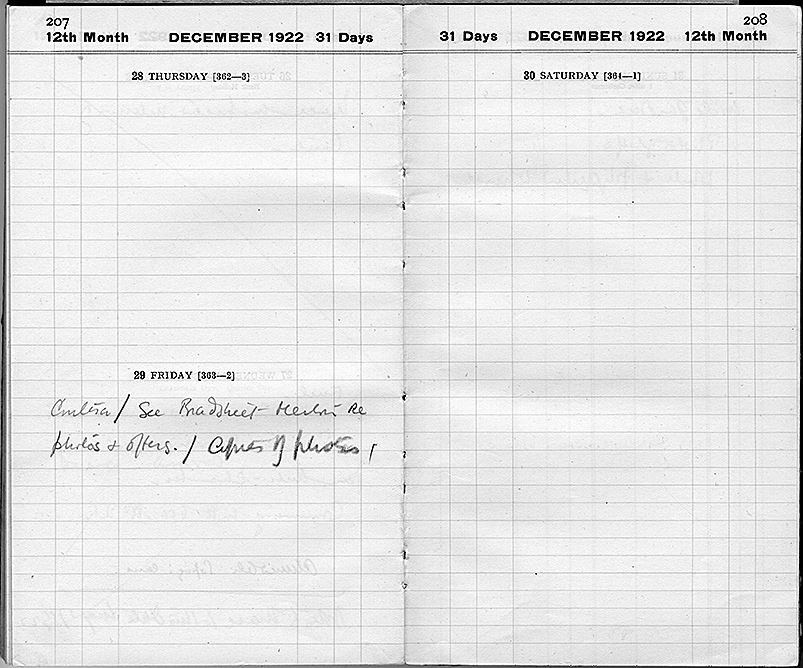 207
12th Month DECEMBER 1922 31 Days
28 THURSDAY [362—3]
29 FRIDAY [363—2]
/ See Broadsheet Merton Re
photos & offers. / Copies of photos /
208
31 Days DECEMBER 1922 12th Month
30 SATURDAY [364—1]